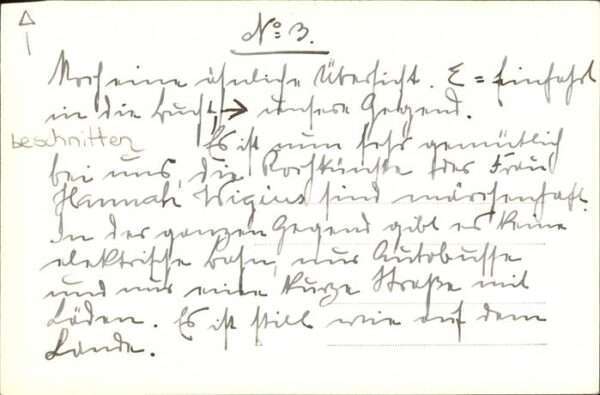 No. 3.
Noch eine ähnliche Übersicht. E = Einfahrt
in die Bucht, → unsere Gegend.
beschnitten Es ist nun sehr gemütlich
bei uns, die Kochkünste der Frau
Hannah Wigius sind märchenhaft.
In der ganzen Gegend gibt es keine
elektrische Bahn, nur Autobusse
und nur eine kurze Straße mit
Läden. Es ist still wie auf dem
Lande.